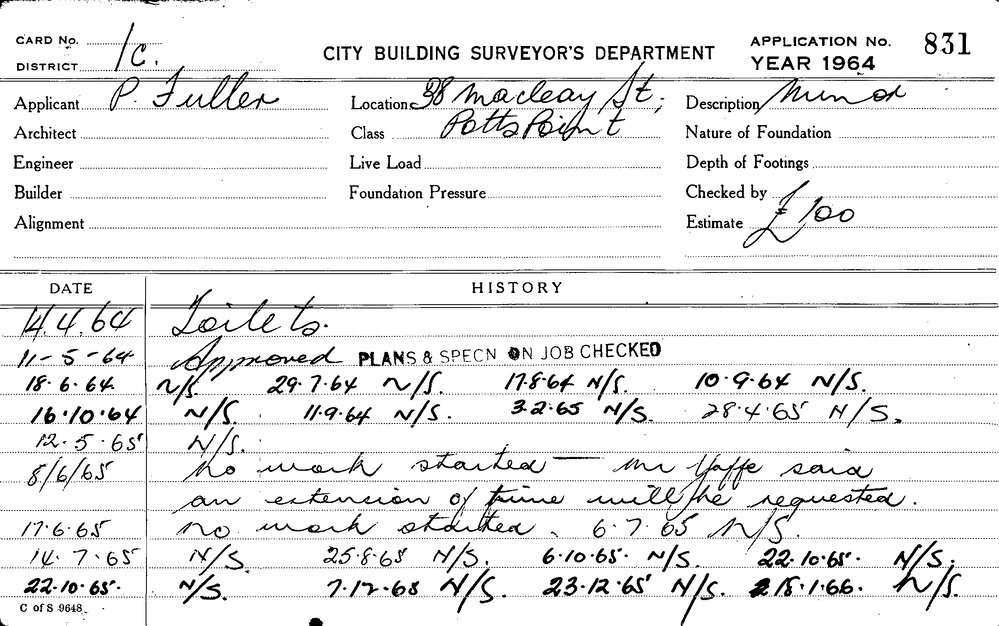 CARD No.
DISTRICT 1c.
CITY BUILDING SURVEYOR'S DEPARTMENT
APPLICATION No. 831
YEAR 1964
Applicant P. Fuller Location 38 Macleay St; Description Minor
Architect Class Potts Point Nature of Foundation
Engineer Live Load Depth of Footings
Builder Foundation Pressure Checked by
Alignment Estimate £100
DATE HISTORY
14.4.64 Toilets.
11-5-64 Approved PLANS & SPECN ON JOB CHECKED
18.6.64 N/S. 29.7.64 N/S. 17.8.64 N/S. 10.9.64 N/S.
16.10.64 N/S. 11.9.64 N/S. 3.2.65 N/S. 28.4.65 N/S.
12.5.65 N/S.
8/6/65 No work started — Mr Yaffe said
an extension of time will be requested.
17.6.65 No work started. 6.7.65 N/S.
14.7.65 N/S. 25.8.65 N/S. 6.10.65. N/S. 22.10.65. N/S.
22.10.65. N/S. 7.12.65 N/S. 23.12.65 N/S. 18.1.66. N/S.
C of S 9648